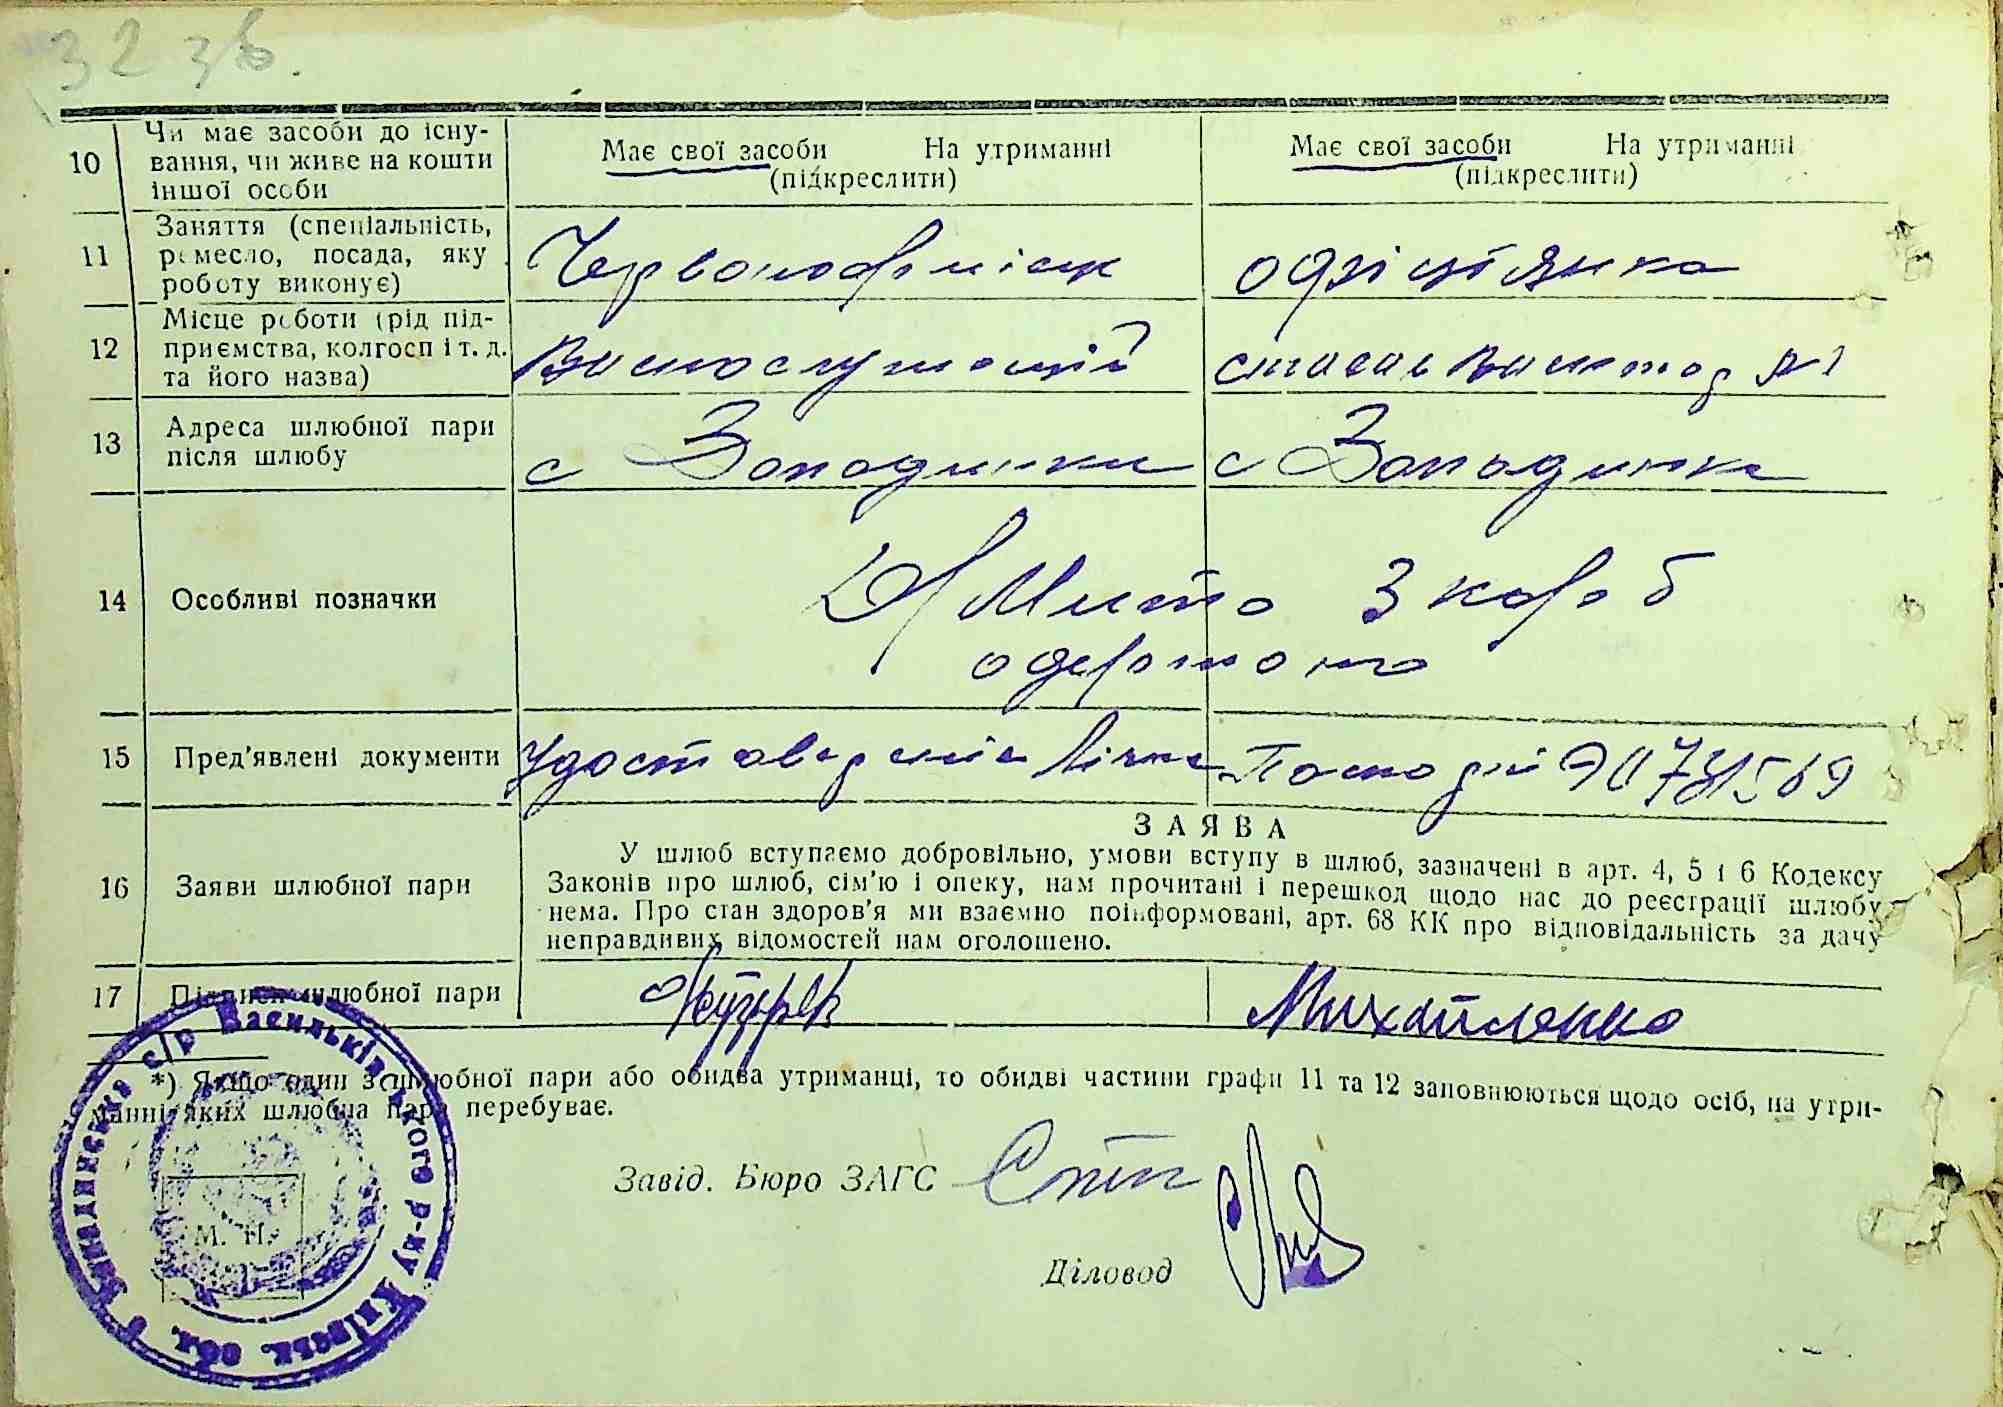 32 зв.
10 Чи має засоби до існу-
вання, чи живе на кошти
іншої особи
Має свої засоби На утриманні
(підкреслити)
Має свої засоби На утриманні
(підкреслити)
11 Заняття (спеціальність,
ремесло, посада, яку
роботу виконує)
Червоноармієць
офіціянка
12 Місце роботи (рід під-
приємства, колгосп і т. д.
та його назва)
Военослужащій
№ 1
13 Адреса шлюбної пари
після шлюбу
с Западинка
с Западинка
14 Особливі позначки
Мито 3 карб
одержано
15 Пред'явлені документи
Удостоверение Лічне
16 Заяви шлюбної пари
ЗАЯВА
У шлюб вступаємо добровільно, умови вступу в шлюб, зазначені в арт. 4, 5 і 6 Кодексу
Законів про шлюб, сім'ю і опеку, нам прочитані і перешкод щодо нас до реєстрації шлюбу
нема. Про стан здоров'я ми взаємно поінформовані, арт. 68 КК про відповідальність за дачу
неправдивих відомостей нам оголошено.
17 Підписи шлюбної пари
Михайленко
*) Якщо один з шлюбної пари або обидва утриманці, то обидві частини графи 11 та 12 заповнюються щодо осіб, на утри-
манні яких шлюбна пара перебуває.
Завід. Бюро ЗАГС
Діловод
М. П.
Западинська с/р Васильківського р-ну Київськ. обл.